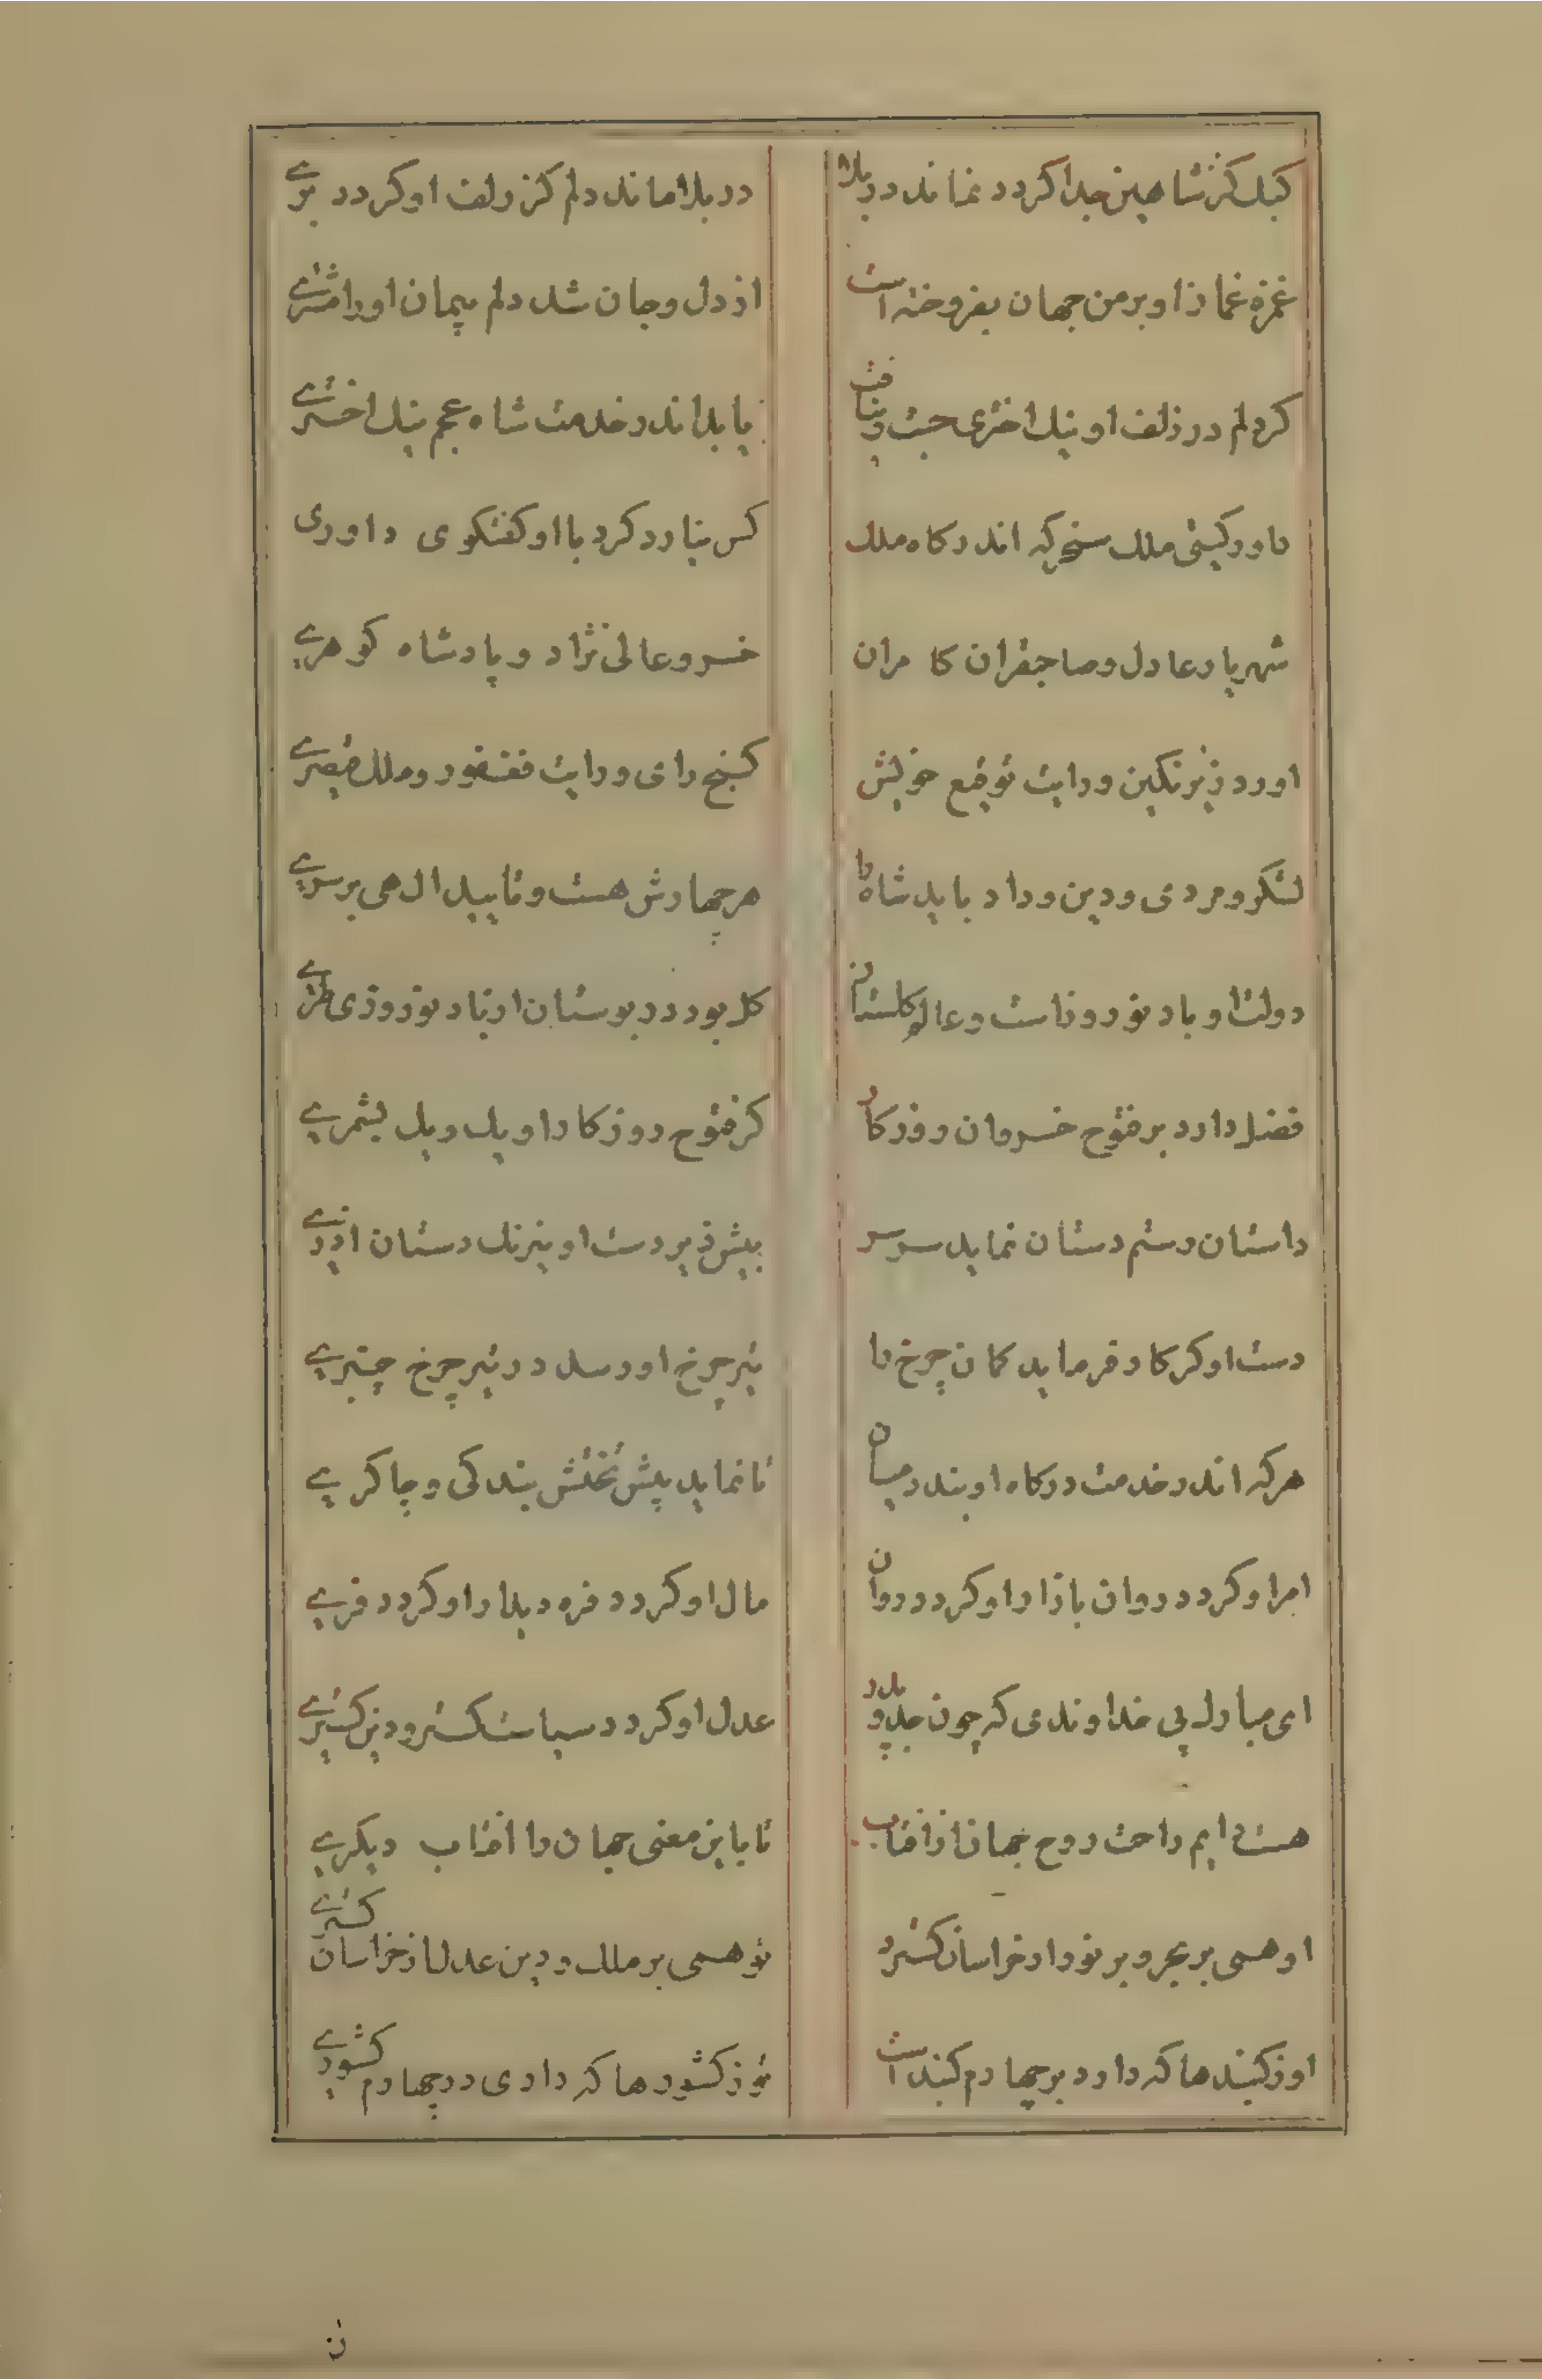 کبک کز شاهین جدا کردد نماند در بلا
در بلا ماند دلم کز زلف او کردد بری
غمزه غماز او بر من جهان بفروخته است
از دل و جان شد دلم پیمان او را مشتری
کر دلم در زلف او نیک اختری جست و نیافت
یابد اندر خدمت شاه عجم نیک اختری
داور کیتی ملک سنجر که اندر کاه ملک
کس نیارد کرد با او کفتکوی داوری
شهریار عادل و صاحبقران کامران
خسرو عالی نژاد و پادشاه کوهری
اورد زیر نکین و رایت توقیع خویش
کنج رای و رایت فغفور و ملک قیصری
لشکر و مردی و دین و داد باید شاه را
هر چهارش هست و تایید الهی بر سری
دولت او باد نوروزاست و عالم کلستان
کل بود در بوستان از باد نوروزی طری
فضل دارد بر فتوح خسروان روزکار
کر فتوح روزکار او یک و یک بشمری
داستان رستم دستان نماید سر سر
پیش زیر دست او نیرنک دستان ازری
دست او کر کار فرماید کمان چرخ را
تیر چرخ او رسد در تیر چرخ چنبری
هر که اندر خدمت درکاه او بندد میان
تا نماید پیش تختش بندکی و چاکری
امر او کردد روان بازار او کردد روان
مال او کردد فره دیدار او کردد فری
ای مبارک پی خداوندی که چون جد و پدر
عدل او کردد سیاست کستر و دین کستری
هست دایم راحت روح جهان از افتاب
تا باین معنی جهان را افتاب دیکری
او همی بر بحر و بر نور از خراسان کسترد
تو همی بر ملک و دین عدل از خراسان کستری
او ز کنبدها که دارد بر چهارم کنبد است
تو ز کشورها که داری در چهارم کشوری